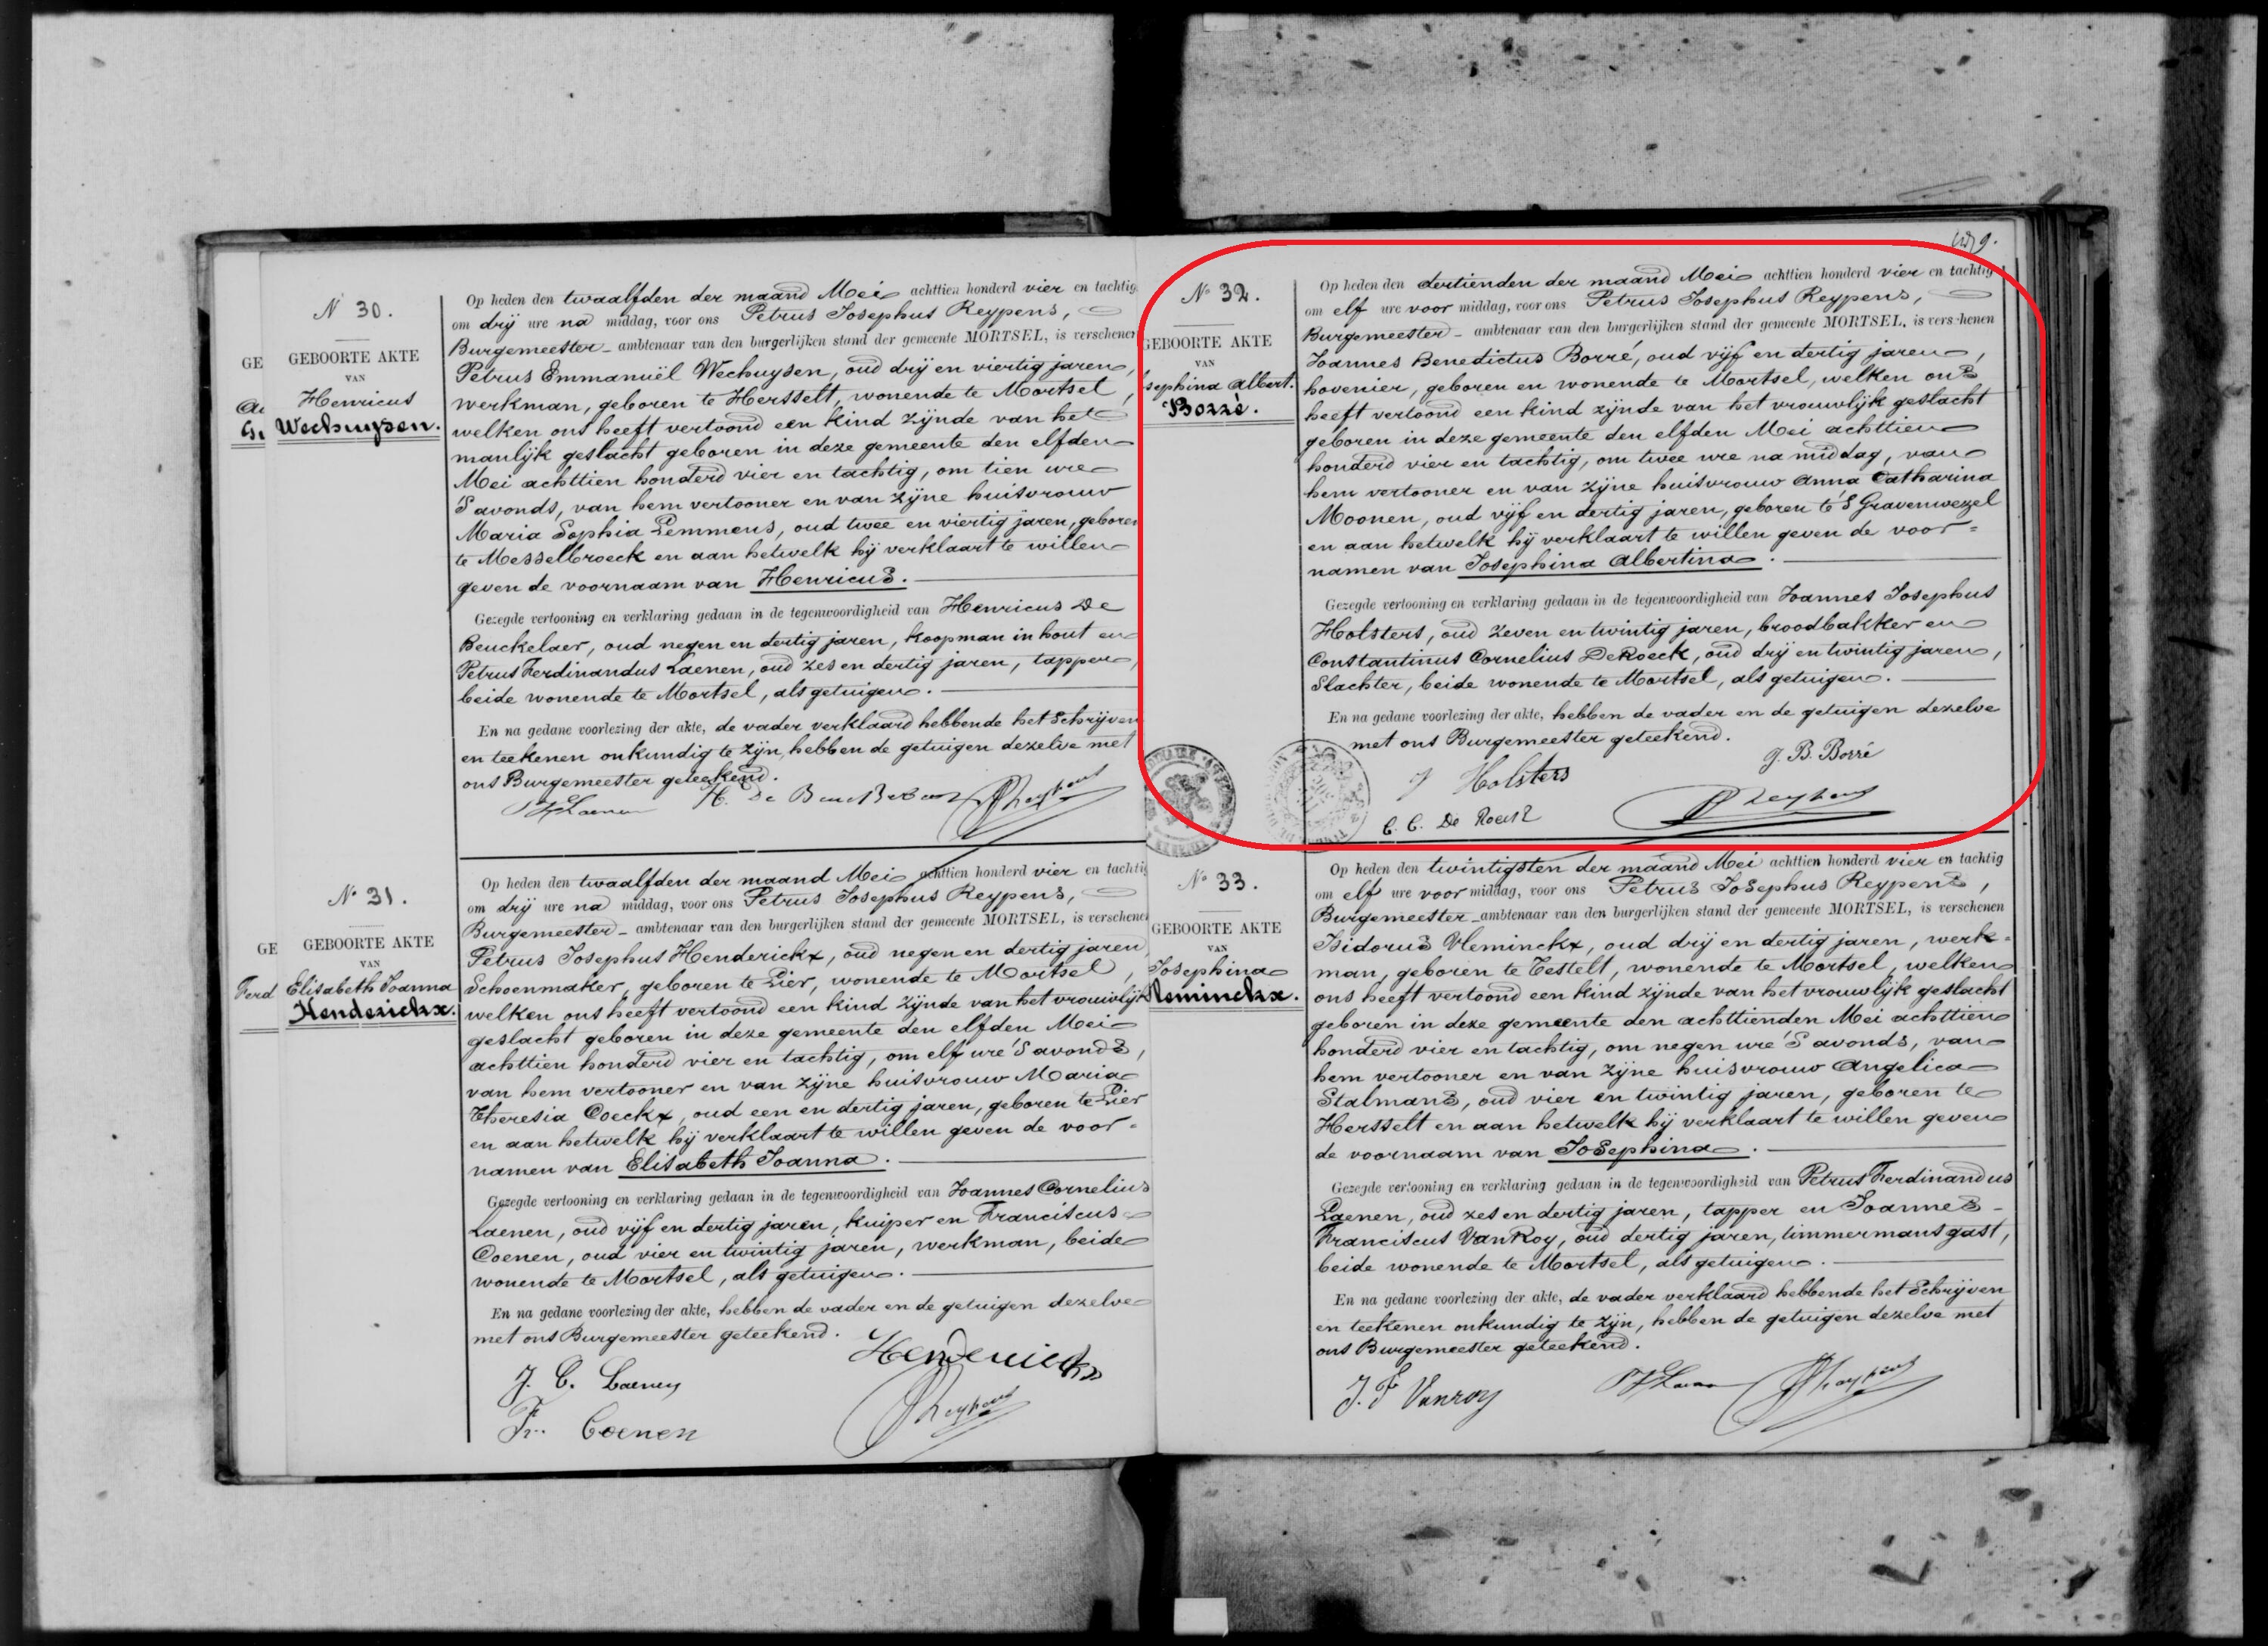 GE
Ferd
GE
N 30.
GEBOORTE AKTE
VAN
Henricus
Wechuysen.
Op heden den twaalfden der maand Mei achttien honderd vier en tachtig
om drij ure na middag, voor ons Petrus Josephus Reypens,
Burgemeester - ambtenaar van den burgerlijken stand der gemeente MORTSEL, is verschenen
Petrus Emmanuël Wechuysen, oud drij en viertig jaren,
werkman, geboren te Hersselt, wonende te Mortsel,
welken ons heeft vertoond een kind zijnde van het
manlijk geslacht geboren in deze gemeente den elfden
Mei achttien honderd vier en tachtig, om tien ure
'S avonds, van hem vertooner en van zijne huisvrouw
Maria Sophia Lemmens, oud twee en viertig jaren, geboren
te Messelbroeck en aan hetwelk hij verklaart te willen
geven de voornaam van Henricus.
Gezegde vertooning en verklaring gedaan in de tegenwoordigheid van Henricus De
Beuckelaer, oud negen en dertig jaren, koopman in hout en
Petrus Ferdinandus Laenen, oud zes en dertig jaren, tapper,
beide wonende te Mortsel, als getuigen.
En na gedane voorlezing der akte, de vader verklaard hebbende het schrijven
en teekenen onkundig te zijn, hebben de getuigen dezelve met
ons Burgemeester geteekend.
PF Laenen H. De Beuckelaer PReypens
N° 31.
GEBOORTE AKTE
VAN
Elisabeth Joanna
Henderickx.
Op heden den twaalfden der maand Mei achttien honderd vier en tachtig
om drij ure na middag, voor ons Petrus Josephus Reypens,
Burgemeester - ambtenaar van den burgerlijken stand der gemeente MORTSEL, is verschenen
Petrus Josephus Henderickx, oud negen en dertig jaren
Schoenmaker, geboren te Lier, wonende te Mortsel,
welken ons heeft vertoond een kind zijnde van het vrouwlijk
geslacht geboren in deze gemeente den elfden Mei
achttien honderd vier en tachtig, om elf ure 'S avonds,
van hem vertooner en van zijne huisvrouw Maria
Theresia Coeckx, oud een en dertig jaren, geboren te Lier
en aan hetwelk hij verklaart te willen geven de voor-
namen van Elisabeth Joanna.
Gezegde vertooning en verklaring gedaan in de tegenwoordigheid van Joannes Cornelius
Laenen, oud vijf en dertig jaren, kuiper en Franciscus
Coenen, oud vier en twintig jaren, werkman, beide
wonende te Mortsel, als getuigen.
En na gedane voorlezing der akte, hebben de vader en de getuigen dezelve
met ons Burgemeester geteekend.
Henderickx
J. C. Laenen
Fr. Coenen PReypens
9.
N° 32.
GEBOORTE AKTE
VAN
Josephina Albert.
Borré.
Op heden den dertienden der maand Mei achttien honderd vier en tachtig
om elf ure voor middag, voor ons Petrus Josephus Reypens,
Burgemeester - ambtenaar van den burgerlijken stand der gemeente MORTSEL, is verschenen
Joannes Benedictus Borré, oud vijf en dertig jaren,
hovenier, geboren en wonende te Mortsel, welken ons
heeft vertoond een kind zijnde van het vrouwlijk geslacht
geboren in deze gemeente den elfden Mei achttien
honderd vier en tachtig, om twee ure na middag, van
hem vertooner en van zijne huisvrouw Anna Catharina
Moonen, oud vijf en dertig jaren, geboren te 'S Gravenwezel
en aan hetwelk hij verklaart te willen geven de voor-
namen van Josephina Albertina.
Gezegde vertooning en verklaring gedaan in de tegenwoordigheid van Joannes Josephus
Holsters, oud zeven en twintig jaren, broodbakker en
Constantinus Cornelius DeRoeck, oud drij en twintig jaren,
Slachter, beide wonende te Mortsel, als getuigen.
En na gedane voorlezing der akte, hebben de vader en de getuigen dezelve
met ons Burgemeester geteekend.
J. B. Borré
J Holsters
C. C. De Roeck PReypens
N° 33.
GEBOORTE AKTE
VAN
Josephina
Vleminckx.
Op heden den twintigsten der maand Mei achttien honderd vier en tachtig
om elf ure voor middag, voor ons Petrus Josephus Reypens,
Burgemeester - ambtenaar van den burgerlijken stand der gemeente MORTSEL, is verschenen
Isidorus Vleminckx, oud drij en dertig jaren, werk-
man, geboren te Testelt, wonende te Mortsel, welken
ons heeft vertoond een kind zijnde van het vrouwlijk geslacht
geboren in deze gemeente den achttienden Mei achttien
honderd vier en tachtig, om negen ure 'S avonds, van
hem vertooner en van zijne huisvrouw Angelica
Stalmans, oud vier en twintig jaren, geboren te
Hersselt en aan hetwelk hij verklaart te willen geven
de voornaam van Josephina.
Gezegde vertooning en verklaring gedaan in de tegenwoordigheid van Petrus Ferdinandus
Laenen, oud zes en dertig jaren, tapper en Joannes
Franciscus VanRoy, oud dertig jaren, timmermansgast,
beide wonende te Mortsel, als getuigen.
En na gedane voorlezing der akte, de vader verklaard hebbende het Schrijven
en teekenen onkundig te zijn, hebben de getuigen dezelve met
ons Burgemeester geteekend.
J. F Vanroy PF Laenen PReypens